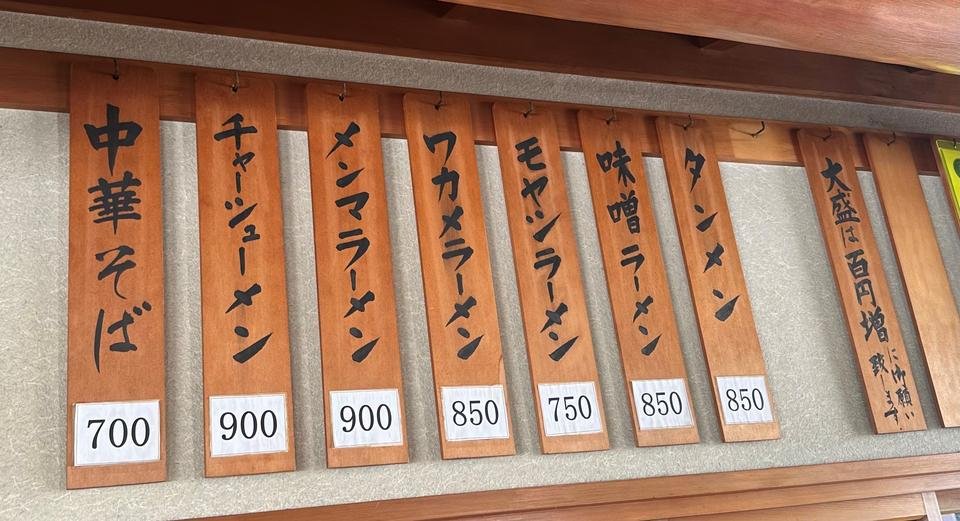 中華そば
700
チャーシューメン
900
メンマラーメン
900
ワカメラーメン
850
モヤシラーメン
750
味噌ラーメン
850
タンメン
850
大盛は百円増
に御願い
致します